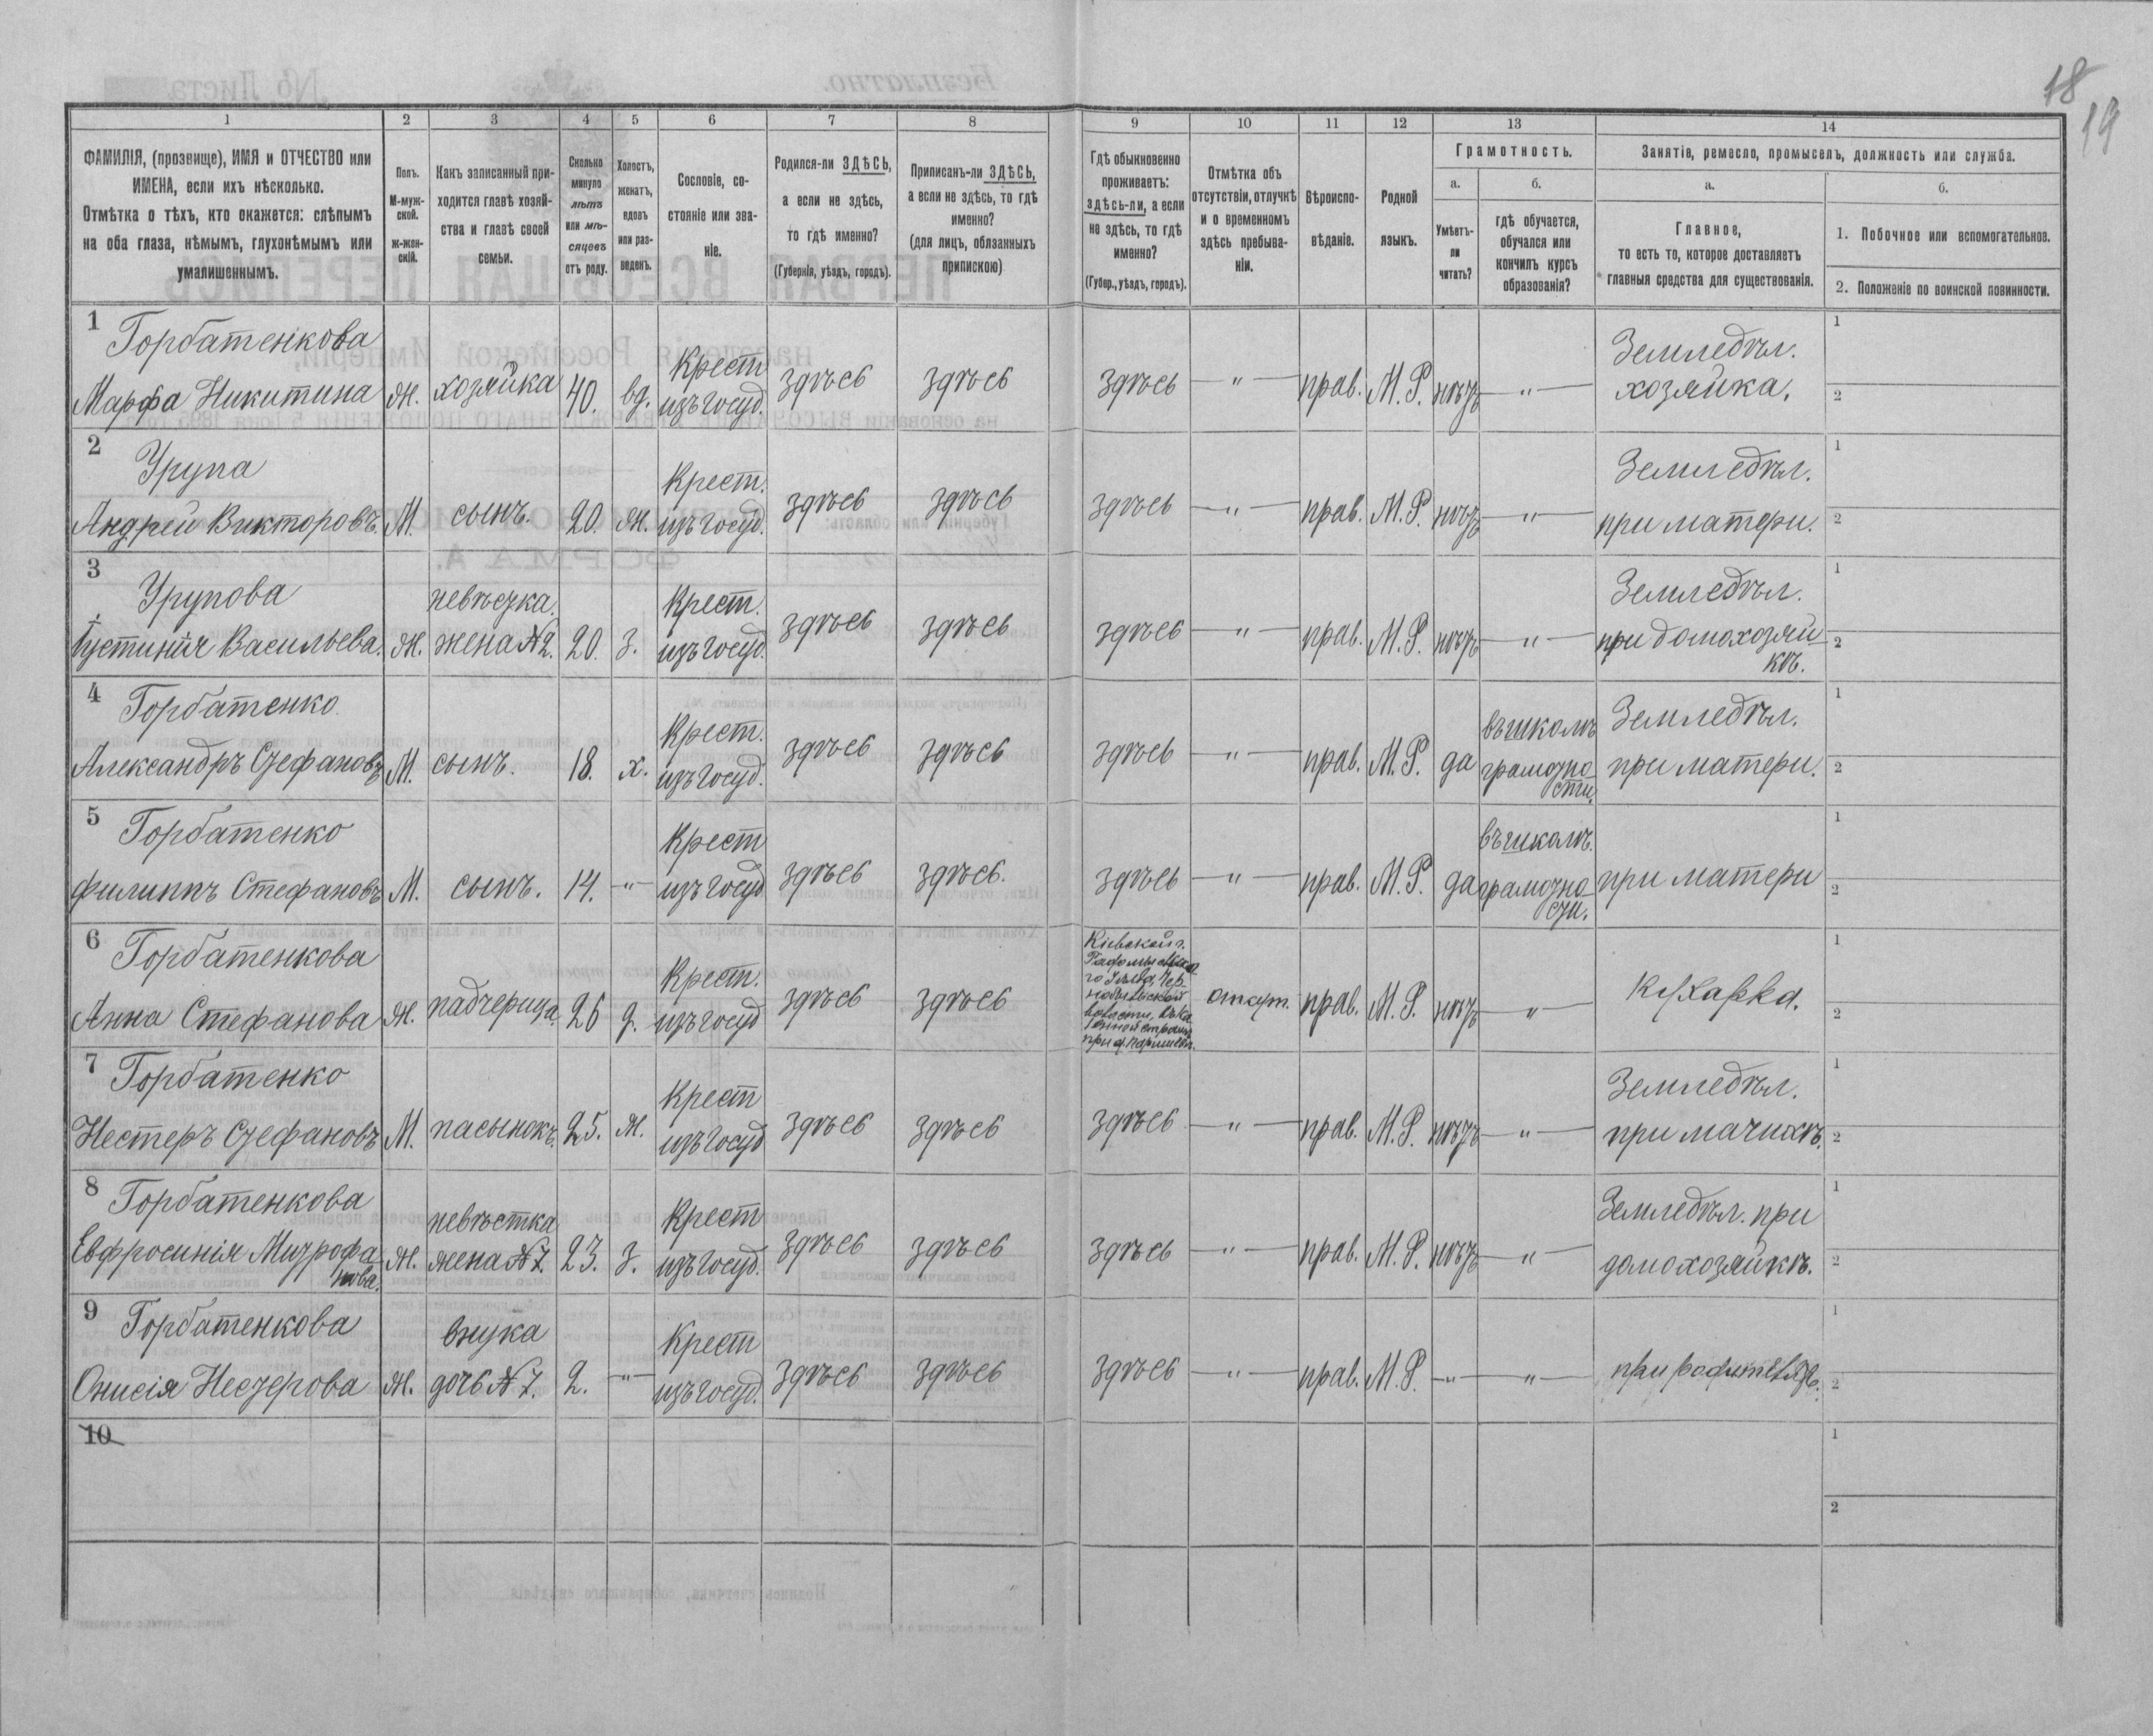 18
19
1 2 3 4 5 6 7 8 9 10 11 12 13 14
ФАМИЛІЯ, (прозвище), ИМЯ и ОТЧЕСТВО или ИМЕНА, если ихъ нѣсколько.
Отмѣтка о тѣхъ, кто окажется: слѣпымъ на оба глаза, нѣмымъ, глухонѣмымъ или умалишеннымъ.
Полъ. М-мужской. Ж-женскій.
Какъ записанный приходится главѣ хозяйства и главѣ своей семьи.
Сколько минуло лѣтъ или мѣсяцевъ отъ роду.
Холостъ, женатъ, вдовъ или разведенъ.
Сословіе, состояніе или званіе.
Родился-ли ЗДѢСЬ, а если не здѣсь, то гдѣ именно?
(Губернія, уѣздъ, городъ).
Приписанъ-ли ЗДѢСЬ, а если не здѣсь, то гдѣ именно?
(для лицъ, обязанныхъ припискою)
Гдѣ обыкновенно проживаетъ: здѣсь-ли, а если не здѣсь, то гдѣ именно?
(Губер., уѣздъ, городъ).
Отмѣтка объ отсутствіи, отлучкѣ и о временномъ здѣсь пребываніи.
Вѣроисповѣданіе.
Родной языкъ.
Грамотность.
а.
Умѣетъ-ли читать?
б.
гдѣ обучается, обучался или кончилъ курсъ образованія?
Занятіе, ремесло, промыселъ, должность или служба.
а.
Главное,
то есть то, которое доставляетъ главныя средства для существованія.
б.
1. Побочное или вспомогательное.
2. Положеніе по воинской повинности.
1 Горбатенкова
Марфа Никитина ж. хозяйка 40. вд. Крест изъ госуд. здѣсь здѣсь здѣсь — " — прав. М.Р. нѣтъ — " — Земледѣл. хозяйка. 1 2
2 Урупа
Андрей Викторовъ. М. сынъ. 20. ж. Крест. изъ госуд. здѣсь здѣсь здѣсь — " — прав. М.Р. нѣтъ — " — Земледѣл. при матери. 1 2
3 Урупова
Густинія Васильева. ж. невѣстка. жена №2. 20. з. Крест. изъ госуд. здѣсь здѣсь здѣсь — " — прав. М.Р. нѣтъ — " — Земледѣл. при домохозяйкѣ. 1 2
4 Горбатенко
Александръ Стефановъ М. сынъ. 18. х. Крест. изъ госуд. здѣсь здѣсь здѣсь — " — прав. М.Р. да въ школѣ грамотности. Земледѣл. при матери. 1 2
5 Горбатенко
Филиппъ Стефановъ М. сынъ. 14. — " — Крест изъ госуд здѣсь здѣсь. здѣсь — " — прав. М.Р. да въ школѣ. грамотности. при матери 1 2
6 Горбатенкова
Анна Стефанова ж. падчерица. 26 д. Крест. изъ госуд здѣсь здѣсь Кіевской г. Радомысльскаго Уѣзда, Чернобыльской волости, отсут. прав. М.Р. нѣтъ — " — Кухарка. 1 2
7 Горбатенко
Нестеръ Стефановъ М. пасынокъ. 25. ж. Крест изъ госуд здѣсь здѣсь здѣсь — " — прав. М.Р. нѣтъ — " — Земледѣл. при мачихѣ. 1 2
8 Горбатенкова
Евфросинія Митрофанова. ж. невѣстка жена №7. 23. з. Крест изъ госуд. здѣсь здѣсь здѣсь — " — прав. М.Р. нѣтъ — " — Земледѣл. при домохозяйкѣ. 1 2
9 Горбатенкова
Онисія Нестерова ж. внука дочь №7. 2. — " — Крест изъ госуд. здѣсь здѣсь здѣсь — " — прав. М.Р. — " — — " — при родителяхъ. 1 2
10 1 2